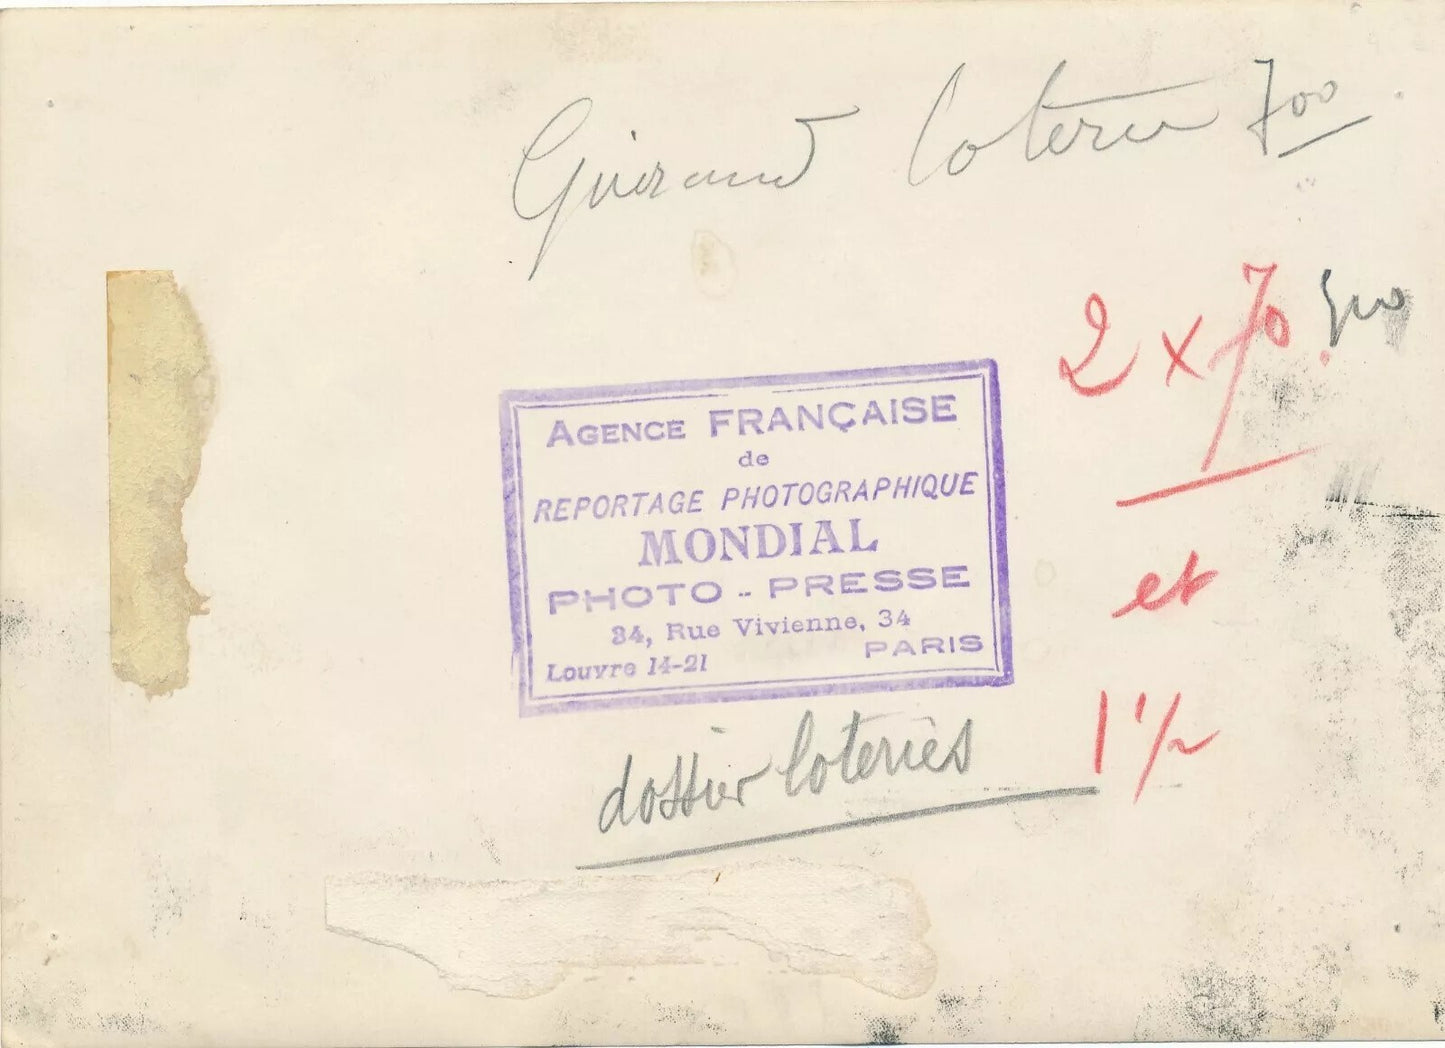 Guiraud loterie 700
2 x 70.
AGENCE FRANÇAISE
de
REPORTAGE PHOTOGRAPHIQUE
MONDIAL
PHOTO - PRESSE
34, Rue Vivienne, 34
Louvre 14-21 PARIS
et
dossier loteries